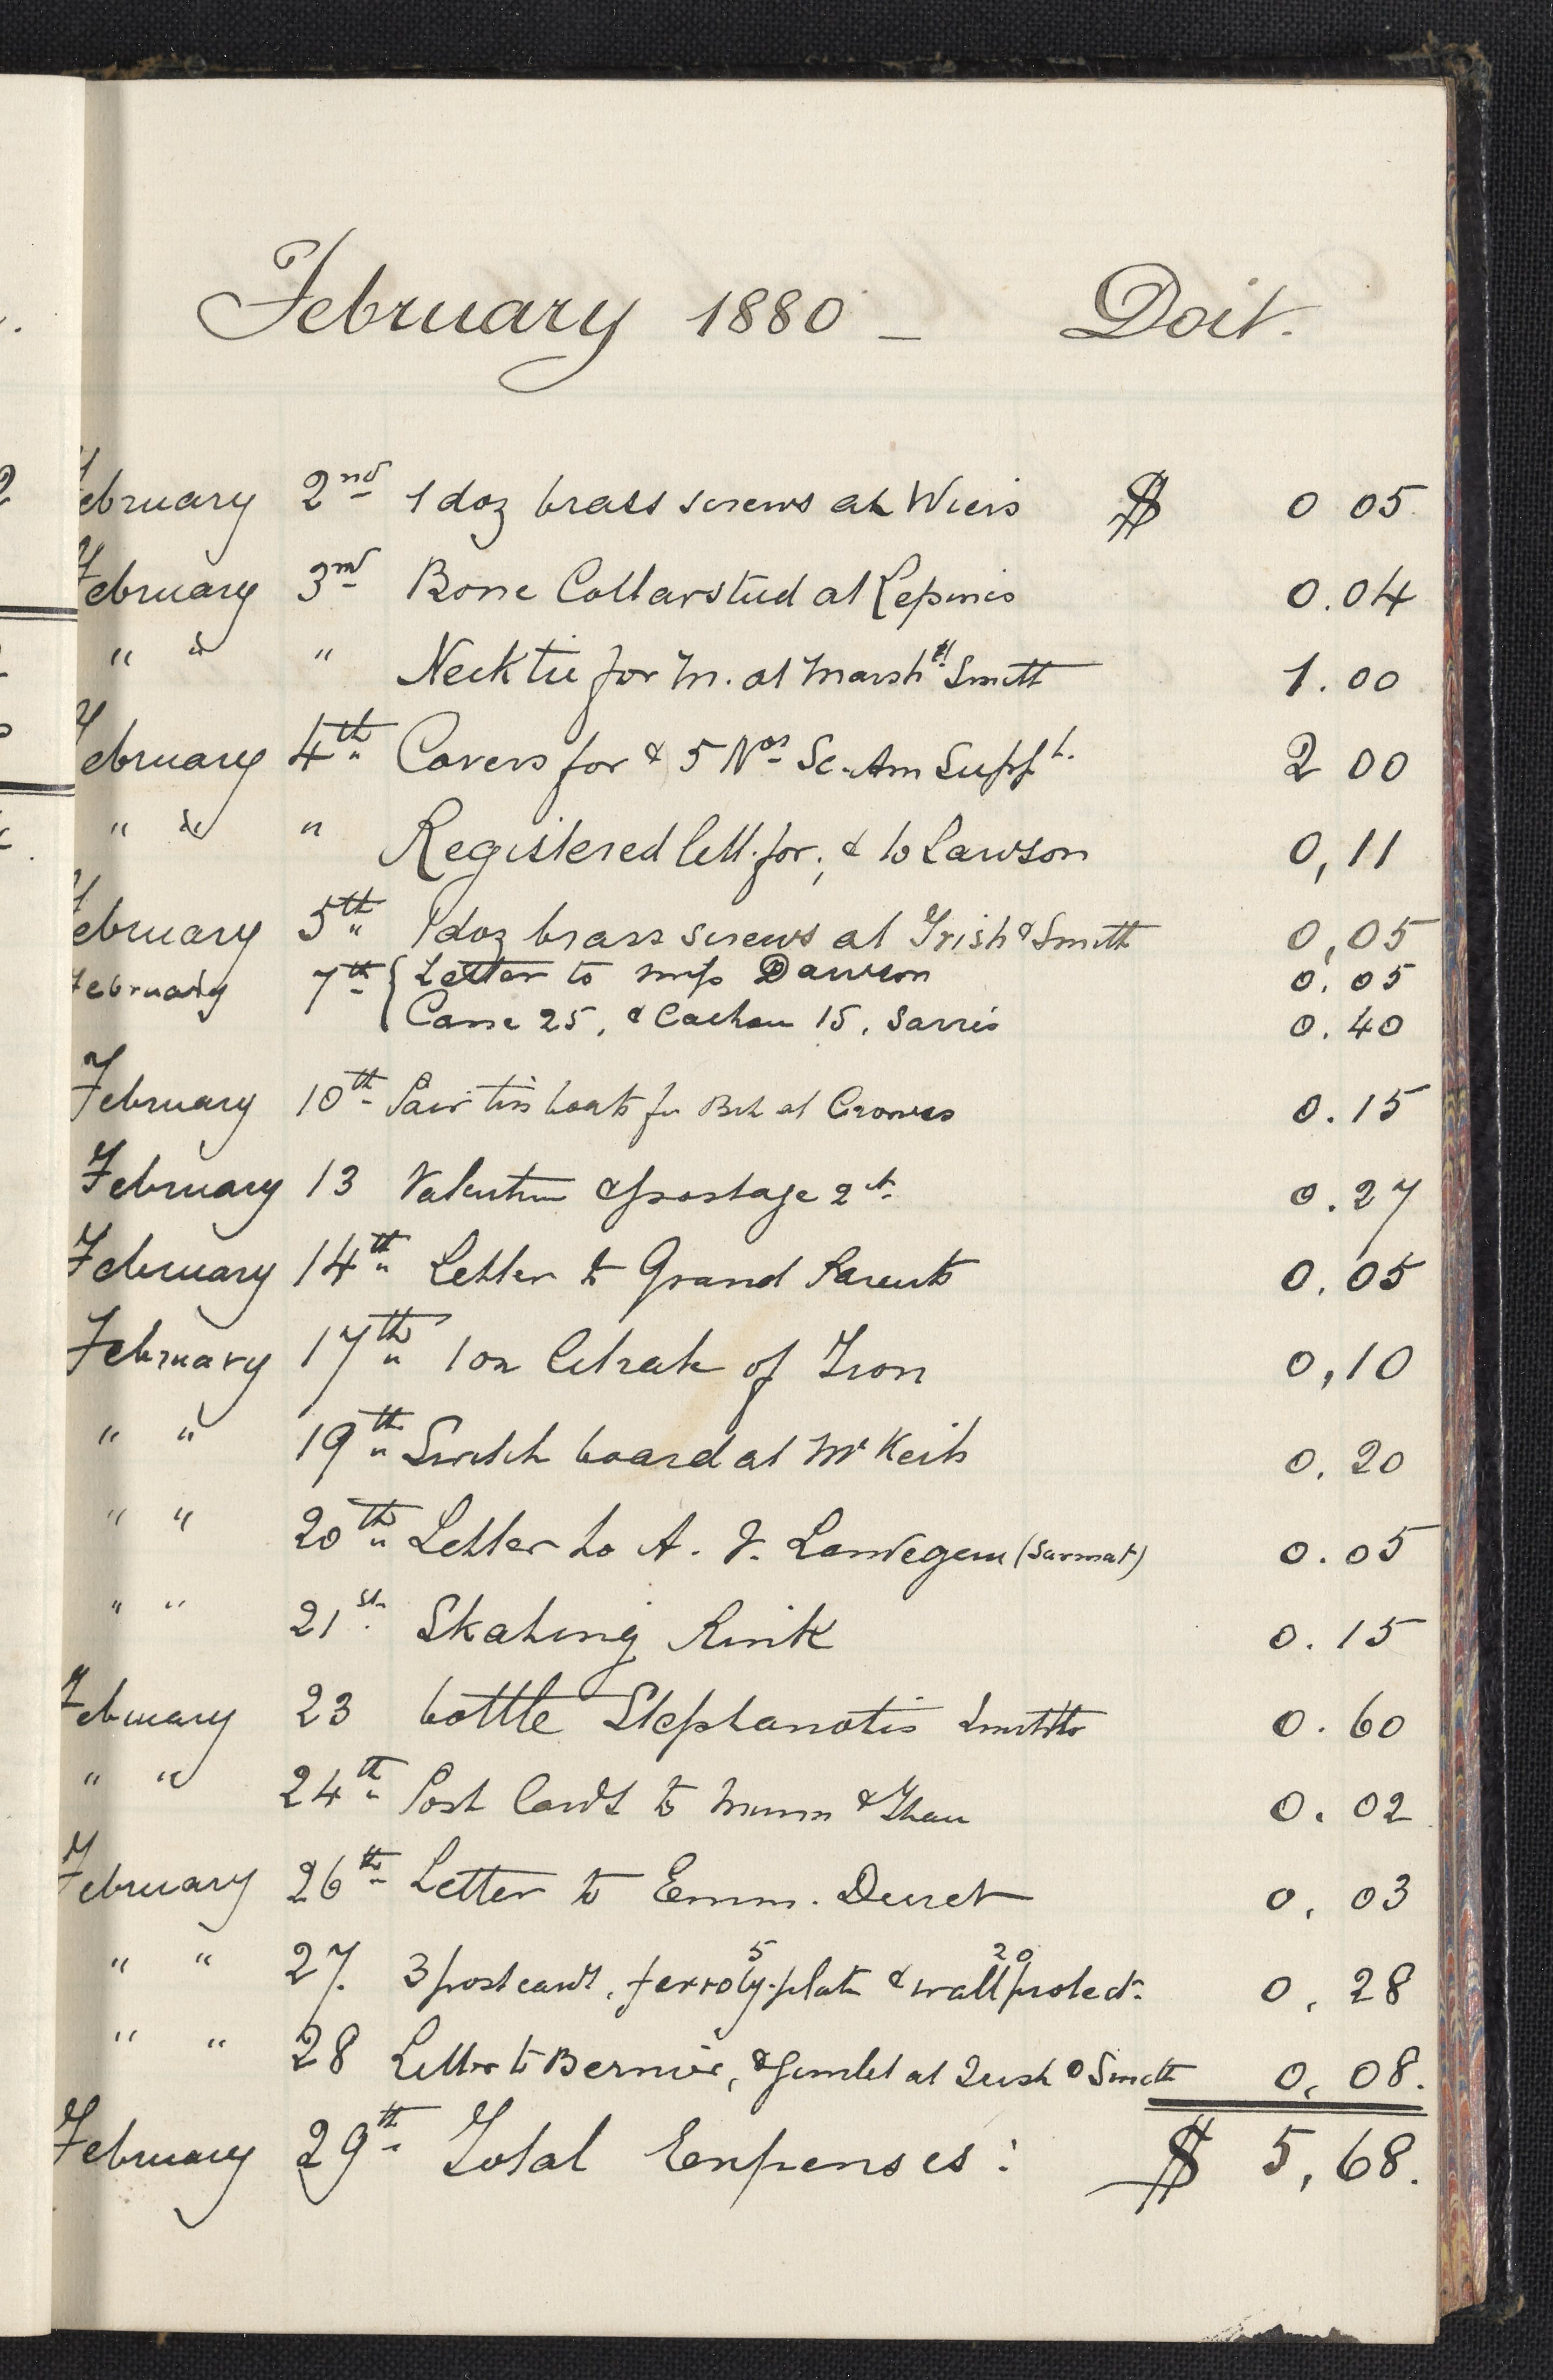 February 1880 — Doit.
February 2nd 1 doz brass screws at Weirs $ 0 05
February 3rd Bone Collar stud at Lepines 0.04
" " " Neck tie for M. at Marsh & Smith 1.00
February 4th Covers for & 5 Nos Sc. Am Suppt. 2 00
" " " Registered lett. for, & to Lawson 0,11
February 5th 1 doz brass screws at Irish & Smith 0,05
February 7th { Letter to Dawson 0.05
Canne 25, & Cachou 15, Sarris 0.40
February 10th Pair tin boats for at 0.15
February 13 Valentine & postage 2ct. 0.27
February 14th Letter to Grand Parents 0.05
February 17th 1 oz Citrate of Iron 0,10
" " 19th Switch board at McKeils 0.20
" " 20th Letter to A. V. (Sarmat) 0.05
" " 21st. Skating Rink 0.15
February 23 bottle Stephanotis Smiths 0.60
" " 24th Post Cards to Munn & 0.02
February 26th Letter to Emm. Duret 0,03
" " 27. 3 post cards, ferroty. plate 5 & wall protect. 20 0,28
" " 28 Letter to Bernier, & Gimlet at Irish & Smith 0,08.
February 29th Total Expenses: $ 5,68.